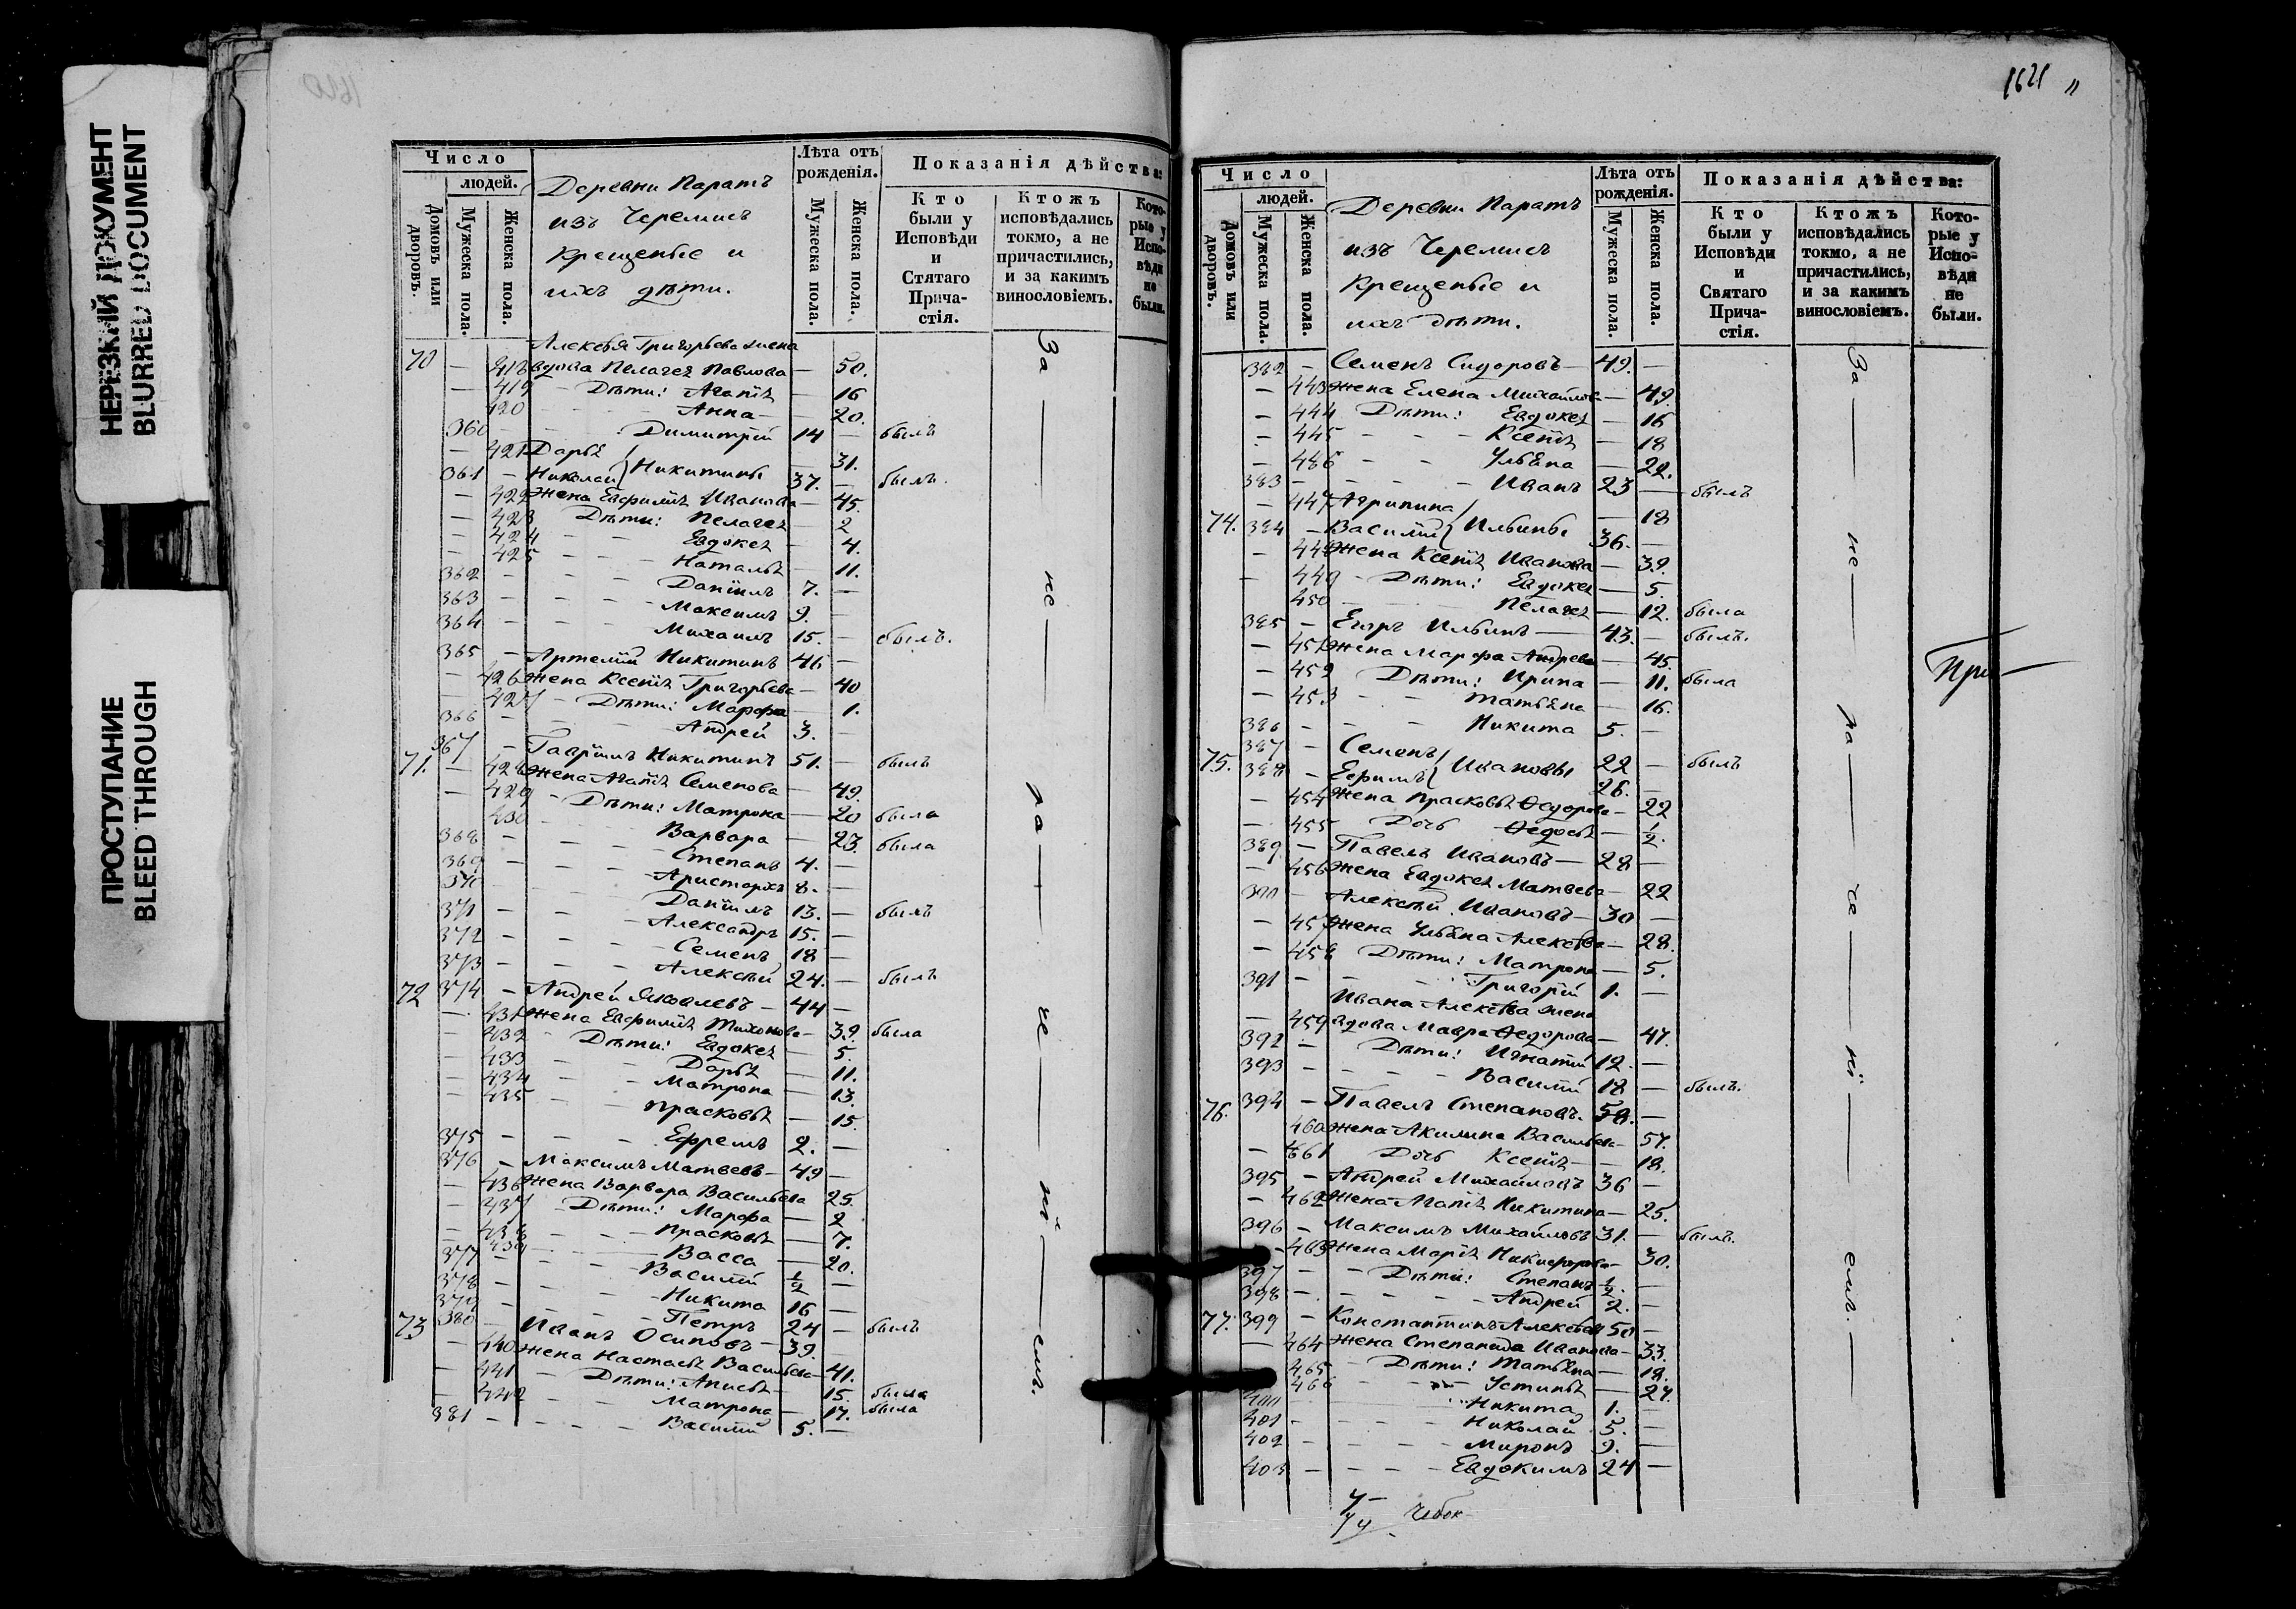 НЕРЕЗКИЙ ДОКУМЕНТ
BLURRED DOCUMENT
ПРОСТУПАНИЕ
BLEED THROUGH
Число
людей.
Домовъ или дворовъ.
Мужеска пола.
Женска пола.
Деревни Паратъ
изъ Черемисъ
крещеные и
ихъ дѣти.
Лѣта отъ рожденія.
Мужеска пола.
Женска пола.
Показанія дѣйства:
Кто были у Исповѣди и Стятаго Прича-стія.
Ктожъ исповѣдались токмо, а не причастились, и за какимъ винословіемъ.
Кото-рые у Испо-вѣди не были.
Алексѣя Григорьева жена
70 — 418 вдова Пелагея Павлова — 50.
— 419 Дѣти: Агапія — 16
420 Анна — 20.
360 — Димитрій 14 — былъ
— 421 Дарья — 31.
361 — Николай } Никитины 37. — былъ.
— 422 Жена Евфимія Иванова — 45.
— 423 Дѣти: Пелагея — 2
— 424 Евдокея — 4.
— 425 Наталья — 11.
362 — Даніилъ 7. —
363 — Максимъ 9. —
364 — Михаилъ 15. — былъ.
365 — Артемій Никитинъ 46 —
— 426 Жена Ксенія Григорьева — 40
— 427 Дѣти: Марфа — 1.
366 — Андрей 3. —
367 — Гавріилъ Никитинъ 51. — былъ
71. — 428 Жена Агапія Семенова — 49.
— 429 Дѣти: Матрона — 20 была
430 Варвара — 23. была
368 — Степанъ 4. —
369 — Аристархъ 8. —
370 Даніилъ 13. — былъ
371 — Александръ 15. —
372 — Семенъ 18 —
373 — Алексѣй 24. — былъ
72 374 — Андрей Яковлевъ — 44 —
— 431 Жена Евфимія Тихонова — 39. была
— 432 Дѣти: Евдокея — 5.
— 433 Дарья — 11.
— 434 Матрона — 13.
— 435 Прасковья — 15.
375 — Ефремъ 2. —
376 — Максимъ Матвеевъ — 49 —
— 436 Жена Варвара Васильева 25.
— 437 Дѣти: Марфа — 2
— 438 Прасковья — 7.
439 Васса — 20.
377 — Василій ½ —
378 — Никита 16 —
379 — Петръ 24 — былъ
73 380 — Иванъ Осиповъ — 39.
— 440 Жена Настасья Васильева — 41.
— 441 Дѣти: Анисья — 15. была
— 442 Матрона — 17. была
381 — Василій 5. —
За не па че ні емъ.
1621
Число
людей.
Домовъ или дворовъ.
Мужеска пола.
Женска пола.
Деревни Паратъ
изъ Черемисъ
крещеные и
ихъ дѣти.
Лѣта отъ рожденія.
Мужеска пола.
Женска пола.
Показанія дѣйства:
Кто были у Исповѣди и Святаго Прича-стія.
Ктожъ исповѣдались токмо, а не причастились, и за какимъ винословіемъ.
Кото-рые у Испо-вѣди не были.
382 — Семенъ Сидоровъ — 49. —
— 443 Жена Елена Михайлова — 49.
— 444 Дѣти: Евдокея — 16
— 445 Ксенія — 18
— 446 Ульяна — 22.
383 — Иванъ 23 — былъ
— 447 Агрипина — 18
74. 384 — Василій } Ильины 36. —
— 448 Жена Ксенія Иванова — 39.
— 449 Дѣти: Евдокея — 5.
450 Пелагея — 12. была
385 — Егоръ Ильинъ — 43. — былъ.
— 451 Жена Марфа Андреева — 45.
— 452 Дѣти: Ирина — 11. была
— 453 Татьяна — 16.
386 — Никита 5. —
387 — Семенъ 22 — былъ
75. 388 — Ефимъ } Ивановы 26. —
— 454 Жена Прасковья Ѳедорова — 22
— 455 Дочь Ѳедосья — ½.
389 — Павелъ Ивановъ — 28 —
— 456 Жена Евдокея Матвеева — 22
390 — Алексѣй Ивановъ — 30 —
— 457 Жена Ульяна Алексѣева — 28.
— 458 Дѣти: Матрона — 5.
391 — Григорій 1. —
Ивана Алексѣева жена
— 459 вдова Мавра Ѳедорова — 47.
392 — Дѣти: Игнатій 12. —
393 — Василій 18 — былъ.
76. 394 — Павелъ Степановъ. 58. —
460 Жена Акилина Васильева — 57.
— 461 Дочь Ксенія — 18.
395 — Андрей Михайловъ 36 —
— 462 Жена Агапія Никитина — 25.
396 — Максимъ Михайловъ 31. — былъ.
— 463 Жена Марія Никифорова — 30.
397 — Дѣти: Степанъ ½. —
398 — Андрей 2. —
77. 399 — Константинъ Алексѣевъ 50 —
— 464 Жена Степанида Иванова — 33.
465 Дѣти: Татьяна — 18.
466 Устинья — 27.
400 Никита 1. —
401 — Николай 5. —
402 — Миронъ 9. —
403 — Евдокимъ 24 —
За не па че ні емъ.
При—